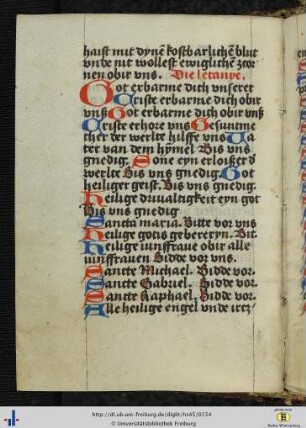 haist mit dynē kostbarlichē blut
vnde nit wollest ewiglichē zcor
nen obir vns. Die letanye.
Got erbarme dich vnserer
Criste erbarme dich obir
vnß Got erbarme dich obir vnß
Criste erhore vns Gesuntme
cher der werlte hilffe vns Va
ter van dem hymel Bis vns
gnedig. Sone eyn erloißer d
werlt Bis vns gnedig. Got
heiliger geist. Bis vns gnedig.
Heilige driualtigkeit eyn got
Bis vns gnedig
Sancta maria. Bitte vor vns
Heilige gotis gebereryn. Bit.
Heilige iunffraue obir alle
iunffrauen Bidde vor vns.
Sancte Michael. Bidde vor.
Sancte Gabriel. Bidde vor.
Sancte Raphael. Bidde vor.
Alle heilige engel vnde ircz
http://dl.ub.uni-freiburg.de/diglit/hs45/0154
© Universitätsbibliothek Freiburg